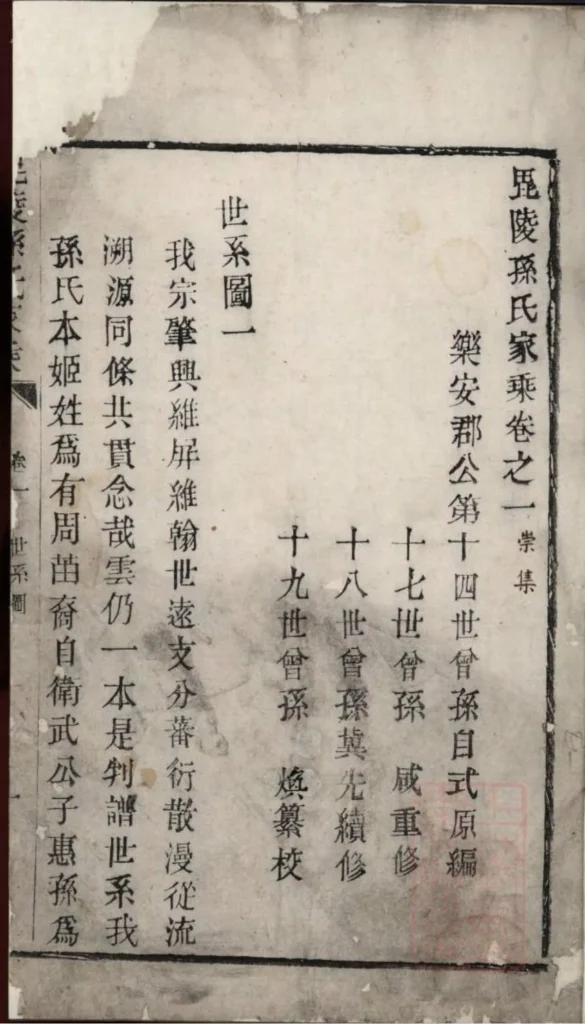 毘陵孫氏家乘卷之一 崇集
樂安郡公第十四世曾孫自式原編
十七世曾孫 咸重修
十八世曾孫冀先續修
十九世曾孫 煥纂校
世系圖一
我宗肇興維屏維翰世遠支分蕃衍散漫從流
溯源同條共貫念哉雲仍一本是判譜世系我
孫氏本姬姓爲有周苗裔自衛武公子惠孫爲
陵孫氏家乘
卷一 世系圖
一